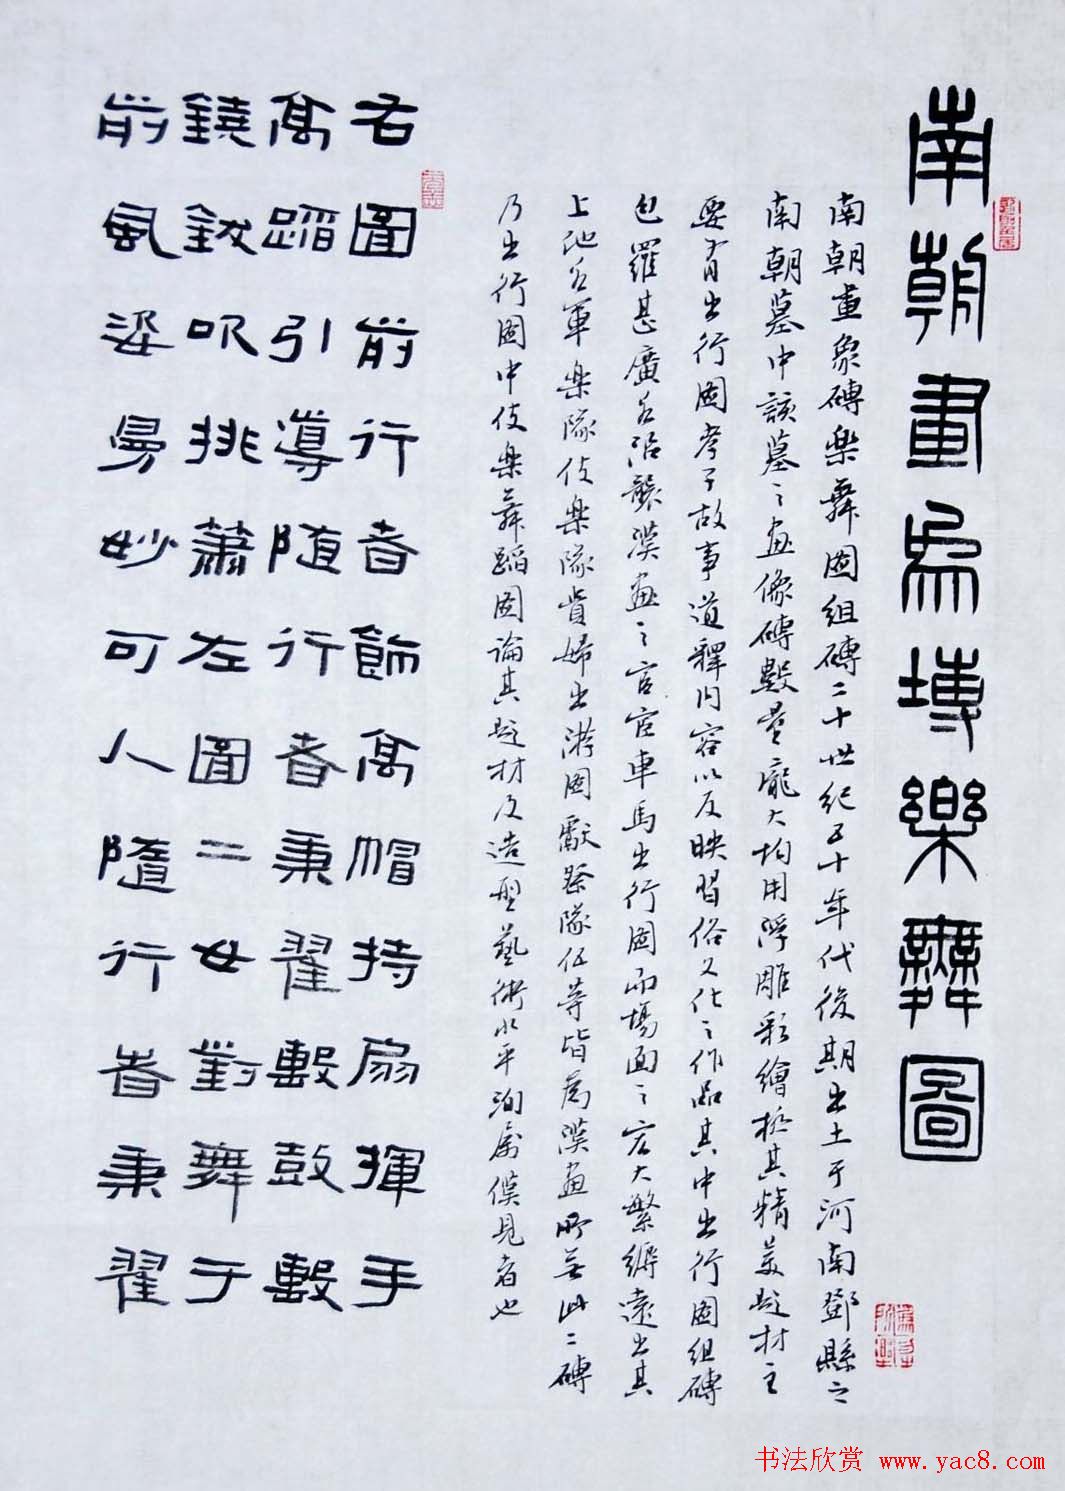 南朝畫像塼樂舞圖
南朝畫象磚樂舞圖組磚二十世紀五十年代後期出土于河南鄧縣之
南朝墓中該墓之畫像磚數量龐大均用浮雕彩繪極其精美題材主
要有出行圖孝子故事道釋內容以及映習俗文化之作品其中出行圖組磚
包羅甚廣有沿襲漢畫之官宦車馬出行圖而場面之宏大繁縟遠出其
上他有軍樂隊伎樂隊貴婦出游圖獻祭隊伍等皆為漢畫所無此二磚
乃出行圖中伎樂舞蹈圖論其題材及造型藝術水平洵屬僅見者也
右圖前行者飾高帽持扇揮手
高蹈引導隨行者秉翟擊鼓擊
鐃鈸吹排蕭左圖二女對舞于
前風姿曼妙可人隨行者秉翟
书法欣赏 www.yac8.com